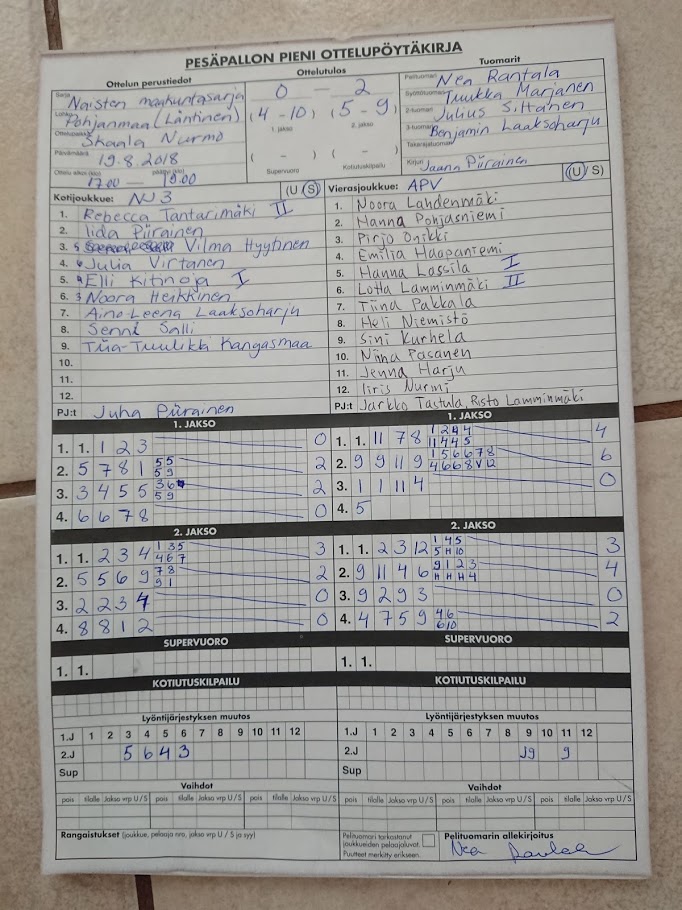 PESÄPALLON PIENI OTTELUPÖYTÄKIRJA
Ottelun perustiedot
Ottelutulos
Tuomarit
Sarja Naisten maakuntasarja
Lohko Pohjanmaa (Läntinen)
Ottelupaikka Skaala Nurmo
Päivämäärä 19.8.2018
Ottelu alkoi (klo) 17.00 — päättyi (klo) 19.00
0 — 2
(4 - 10) (5 - 9)
1. jakso 2. jakso
( - ) ( - )
Supervuoro Kotiutuskilpailu
Pelituomari Nea Rantala
Syöttötuomari Tuukka Marjanen
2-tuomari Julius Siltanen
3-tuomari Benjamin Laaksoharju
Takarajatuomari
Kirjuri Jaana Piirainen
Kotijoukkue: NJ3 (U S)
1. Rebecca Tantarimäki II
2. Iida Piirainen
3. 5 Vilma Hyyhnen
4. 6 Julia Virtanen
5. 4 Elli Kitinoja I
6. 3 Noora Heikkinen
7. Aino-Leena Laaksoharju
8. Senni Salli
9. Tiia-Tuulikki Kangasmaa
10.
11.
12.
PJ:t Juha Piirainen
Vierasjoukkue: APV (U / S)
1. Noora Lahdenmäki
2. Hanna Pohjasniemi
3. Pirjo Onikki
4. Emilia Haapaniemi
5. Hanna Lassila I
6. Lotta Lamminmäki II
7. Tiina Pakkala
8. Heli Niemistö
9. Sini Kurhela
10. Niina Pasanen
11. Jenna Harju
12. Iiris Nurmi
PJ:t Jarkko Tastula, Risto Lamminmäki
1. JAKSO
1. 1. 1 2 3 0
2. 5 7 8 1 55 59 2
3. 3 4 5 5 36 59 2
4. 6 6 7 8 0
1. JAKSO
1. 1. 11 7 8 1244 11445 4
2. 9 9 11 9 156678 4668V12 6
3. 1 1 11 4 0
4. 5
2. JAKSO
1. 1. 2 3 4 135 467 3
2. 5 5 6 9 78 91 2
3. 2 2 3 4 0
4. 8 8 1 2 0
2. JAKSO
1. 1. 2 3 12 145 5H10 3
2. 9 11 4 6 9123 HHH4 4
3. 9 2 9 3 0
4. 4 7 5 9 46 610 2
SUPERVUORO
1. 1.
SUPERVUORO
1. 1.
KOTIUTUSKILPAILU
KOTIUTUSKILPAILU
Lyöntijärjestyksen muutos
1.J 1 2 3 4 5 6 7 8 9 10 11 12
2.J 5 6 4 3
Sup
Lyöntijärjestyksen muutos
1.J 1 2 3 4 5 6 7 8 9 10 11 12
2.J J9 9
Sup
Vaihdot
pois tilalle Jakso vrp U / S pois tilalle Jakso vrp U / S pois tilalle Jakso vrp U / S
Vaihdot
pois tilalle Jakso vrp U / S pois tilalle Jakso vrp U / S pois tilalle Jakso vrp U / S
Rangaistukset (joukkue, pelaaja nro, jakso vrp U / S ja syy)
Pelituomari tarkastanut
joukkueiden pelaajaluvat.
Puutteet merkitty erikseen.
Pelituomarin allekirjoitus
Nea